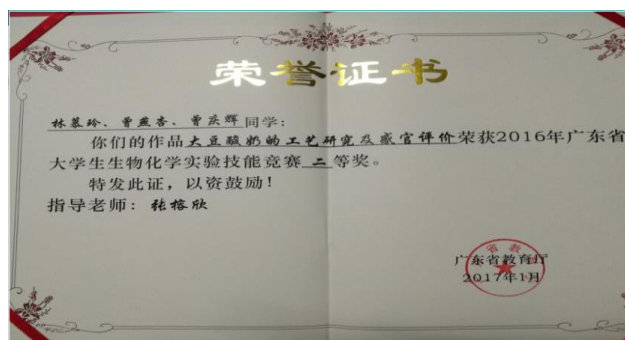 荣誉证书
林慕玲、曾燕杏、曾庆辉同学:
你们的作品大豆酸奶的工艺研究及感官评价荣获2016年广东省
大学生生物化学实验技能竞赛二等奖。
特发此证,以资鼓励!
指导老师:张榕欣
广东省教育厅
2017年1月